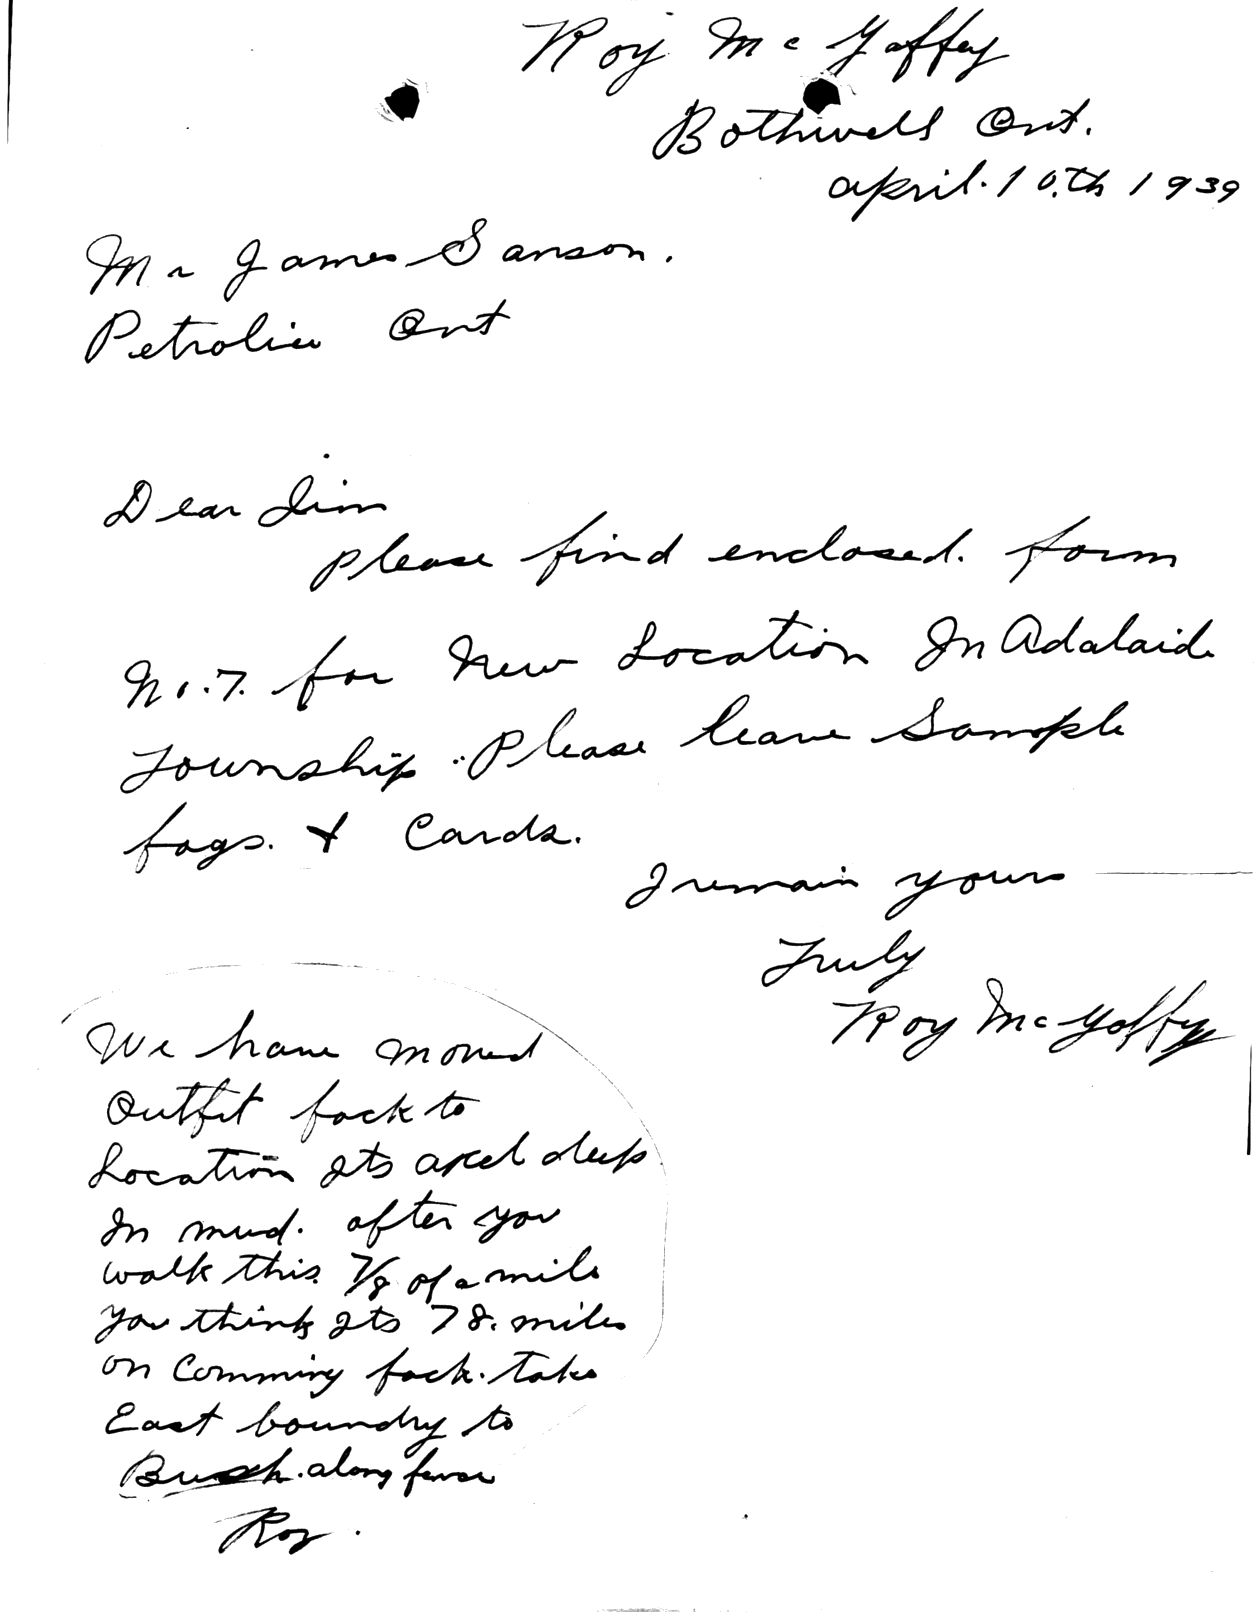 Roy McGaffey
Bothwell Ont.
april. 10.th 1939
Mr James Sanson.
Petrolia Ont
Dear Jim
please find enclosed. form
No. 7. for New Location In Adalaide
Township. Please leave Sample
bags. & Cards.
I remain yours
Truly
Roy McGaffey
We have moved
Outfit back to
Location Its axel deep
In mud. after you
walk this. 7/8 of a mile
you think Its 78. miles
on Comming back. take
East boundry to
Bush. along fence
Roy.